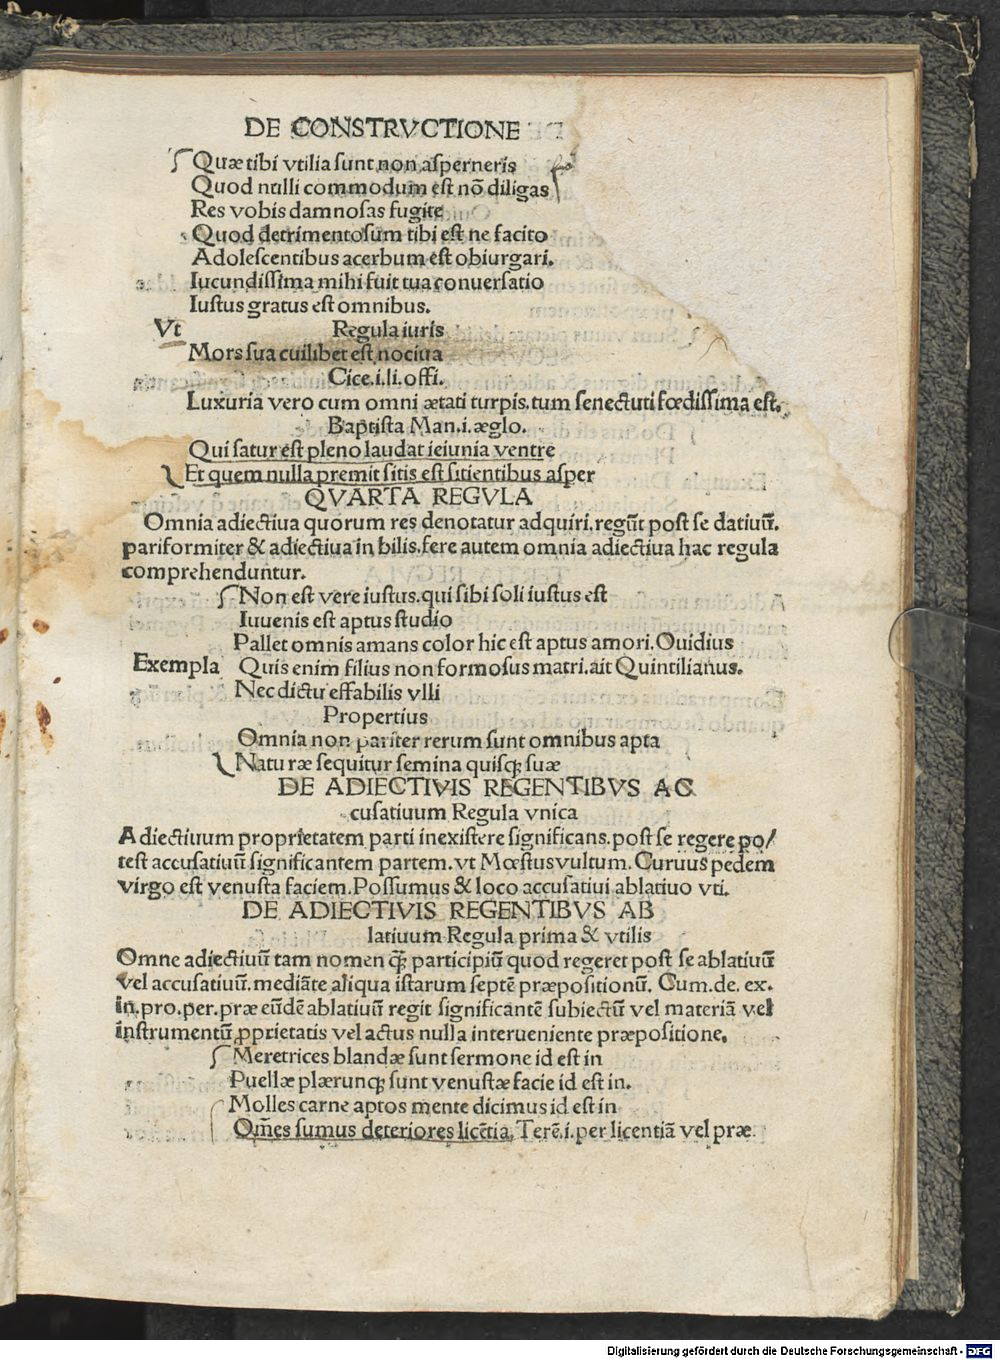 DE CONSTRVCTIONE
Quæ tibi vtilia sunt non asperneris
Quod nulli commodum est nō diligas
Res vobis damnosas fugite
Quod detrimentosum tibi est ne facito
Adolescentibus acerbum est obiurgari.
Iucundissima mihi fuit tua conuersatio
Iustus gratus est omnibus.
Vt Regula iuris
Mors sua cuilibet est nociua
Cice.i.li.offi.
Luxuria vero cum omni ætati turpis.tum senectuti fœdissima est.
Baptista Man.i.æglo.
Qui satur est pleno laudat ieiunia ventre
Et quem nulla premit sitis est sitientibus asper
QVARTA REGVLA
Omnia adiectiua quorum res denotatur adquiri.regūt post se datiuū.
pariformiter & adiectiua in bilis.fere autem omnia adiectiua hac regula
comprehenduntur.
Non est vere iustus.qui sibi soli iustus est
Iuuenis est aptus studio
Pallet omnis amans color hic est aptus amori.Ouidius
Exempla Quis enim filius non formosus matri.ait Quintilianus.
Nec dictu effabilis vlli
Propertius
Omnia non pariter rerum sunt omnibus apta
Natu ræ sequitur semina quisq; suæ
DE ADIECTIVIS REGENTIBVS AC
cusatiuum Regula vnica
Adiectiuum proprietatem parti inexistere significans.post se regere po/
test accusatiuū significantem partem.vt Mœstus vultum. Curuus pedem
virgo est venusta faciem.Possumus & loco accusatiui ablatiuo vti.
DE ADIECTIVIS REGENTIBVS AB
latiuum Regula prima & vtilis
Omne adiectiuū tam nomen q̄ participiū quod regeret post se ablatiuū
vel accusatiuū.mediāte aliqua istarum septē præpositionū. Cum.de. ex.
in.pro.per.præ eūdē ablatiuū regit significantē subiectū vel materiā vel
instrumentū ꝓprietatis vel actus nulla interueniente præpositione.
Meretrices blandæ sunt sermone id est in
Puellæ plærunq; sunt venustæ facie id est in.
Molles carne aptos mente dicimus id est in
Om̄es sumus deteriores licētia. Terē.i.per licentiā vel præ
Digitalisierung gefördert durch die Deutsche Forschungsgemeinschaft - DFG